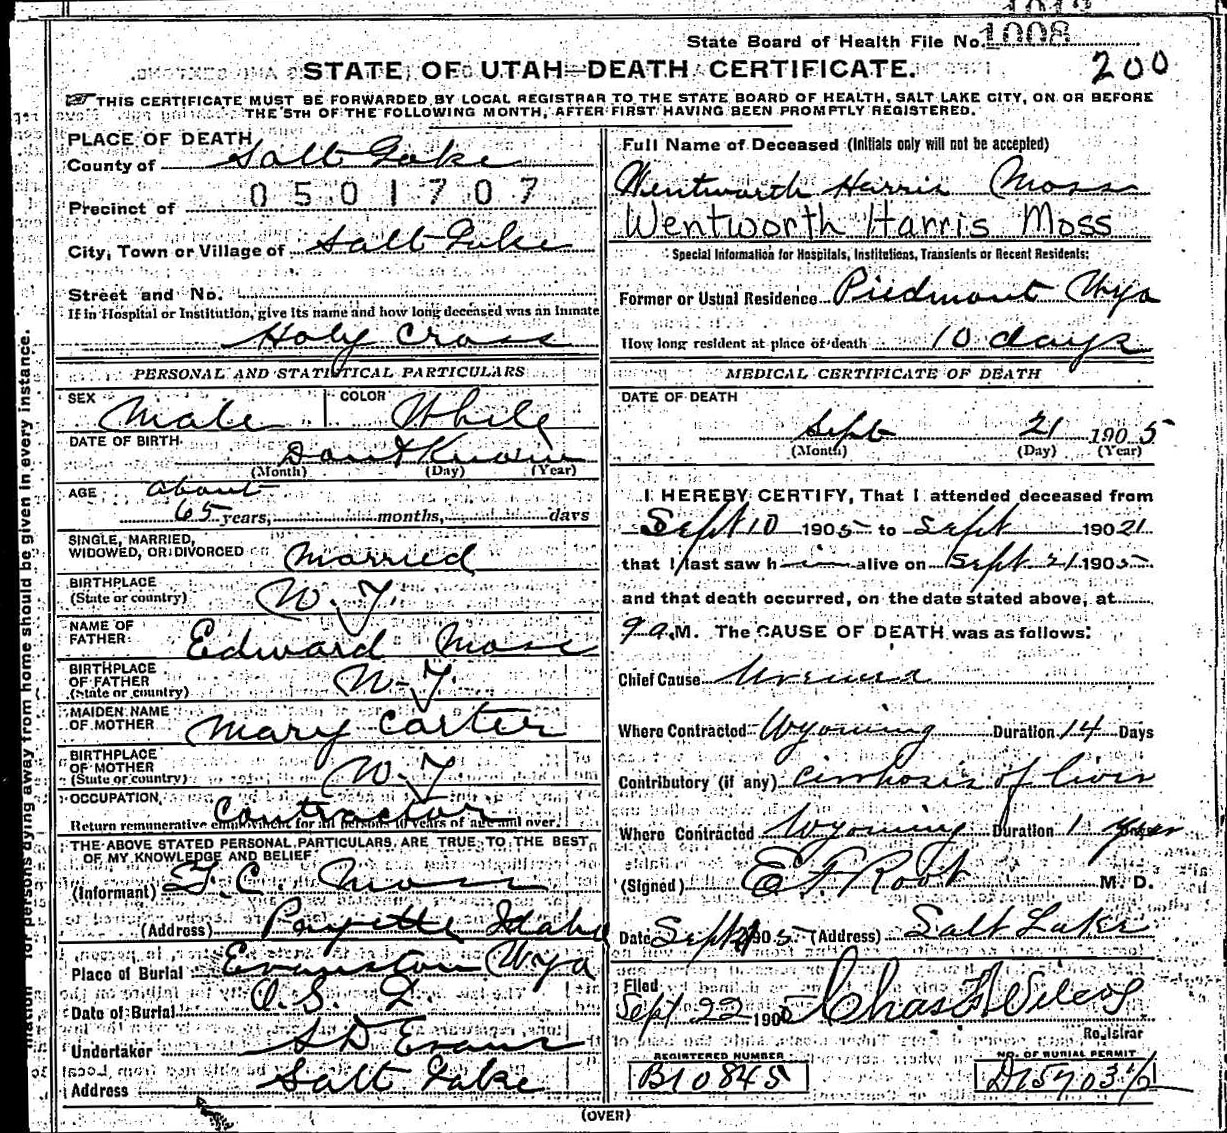 State Board of Health File No. 1008
200
STATE OF UTAH—DEATH CERTIFICATE.
THIS CERTIFICATE MUST BE FORWARDED BY LOCAL REGISTRAR TO THE STATE BOARD OF HEALTH, SALT LAKE CITY, ON OR BEFORE
THE 5TH OF THE FOLLOWING MONTH, AFTER FIRST HAVING BEEN PROMPTLY REGISTERED.
PLACE OF DEATH
County of Salt Lake
0501707
Precinct of
City, Town or Village of Salt Lake
Street and No.
If in Hospital or Institution, give its name and how long deceased was an inmate
Holy Cross
PERSONAL AND STATISTICAL PARTICULARS
SEX Male COLOR White
DATE OF BIRTH
Dont Know
(Month) (Day) (Year)
AGE about
65 years, months, days
SINGLE, MARRIED,
WIDOWED, OR DIVORCED Married
BIRTHPLACE
(State or country) N.Y.
NAME OF
FATHER Edward Moss
BIRTHPLACE
OF FATHER
(State or country) N-Y.
MAIDEN NAME
OF MOTHER Mary Carter
BIRTHPLACE
OF MOTHER
(State or country) N-Y
OCCUPATION Contractor
Return remunerative employment for all persons 10 years of age and over.
THE ABOVE STATED PERSONAL PARTICULARS ARE TRUE TO THE BEST
OF MY KNOWLEDGE AND BELIEF
(Informant) F. C. Moss
(Address) Payette Idaho
Place of Burial Evanston Wyo
Date of Burial O. S. L.
Undertaker S D Evans
Address Salt Lake
Full Name of Deceased (Initials only will not be accepted)
Wentworth Harris Moss
Wentworth Harris Moss
Special Information for Hospitals, Institutions, Transients or Recent Residents:
Former or Usual Residence Piedmont Wyo
How long resident at place of death 10 days
MEDICAL CERTIFICATE OF DEATH
DATE OF DEATH
Sept 21 1905
(Month) (Day) (Year)
I HEREBY CERTIFY, That I attended deceased from
Sept 10 1905 to Sept 19021
that I last saw h im alive on Sept 21 1905
and that death occurred, on the date stated above, at
9 a. M. The CAUSE OF DEATH was as follows:
Chief Cause Uremia
Where Contracted Wyoming Duration 14 Days
Contributory (if any) cirrhosis of liver
Where Contracted Wyoming Duration 1 year
(Signed) E F. Root M. D.
Date Sept 1905 (Address) Salt Lake
Filed
Sept 22 1905 Chas F Wilcox
Registrar
REGISTERED NUMBER
B10845
NO. OF BURIAL PERMIT
D15703½
(OVER)
for persons dying away from home should be given in every instance.